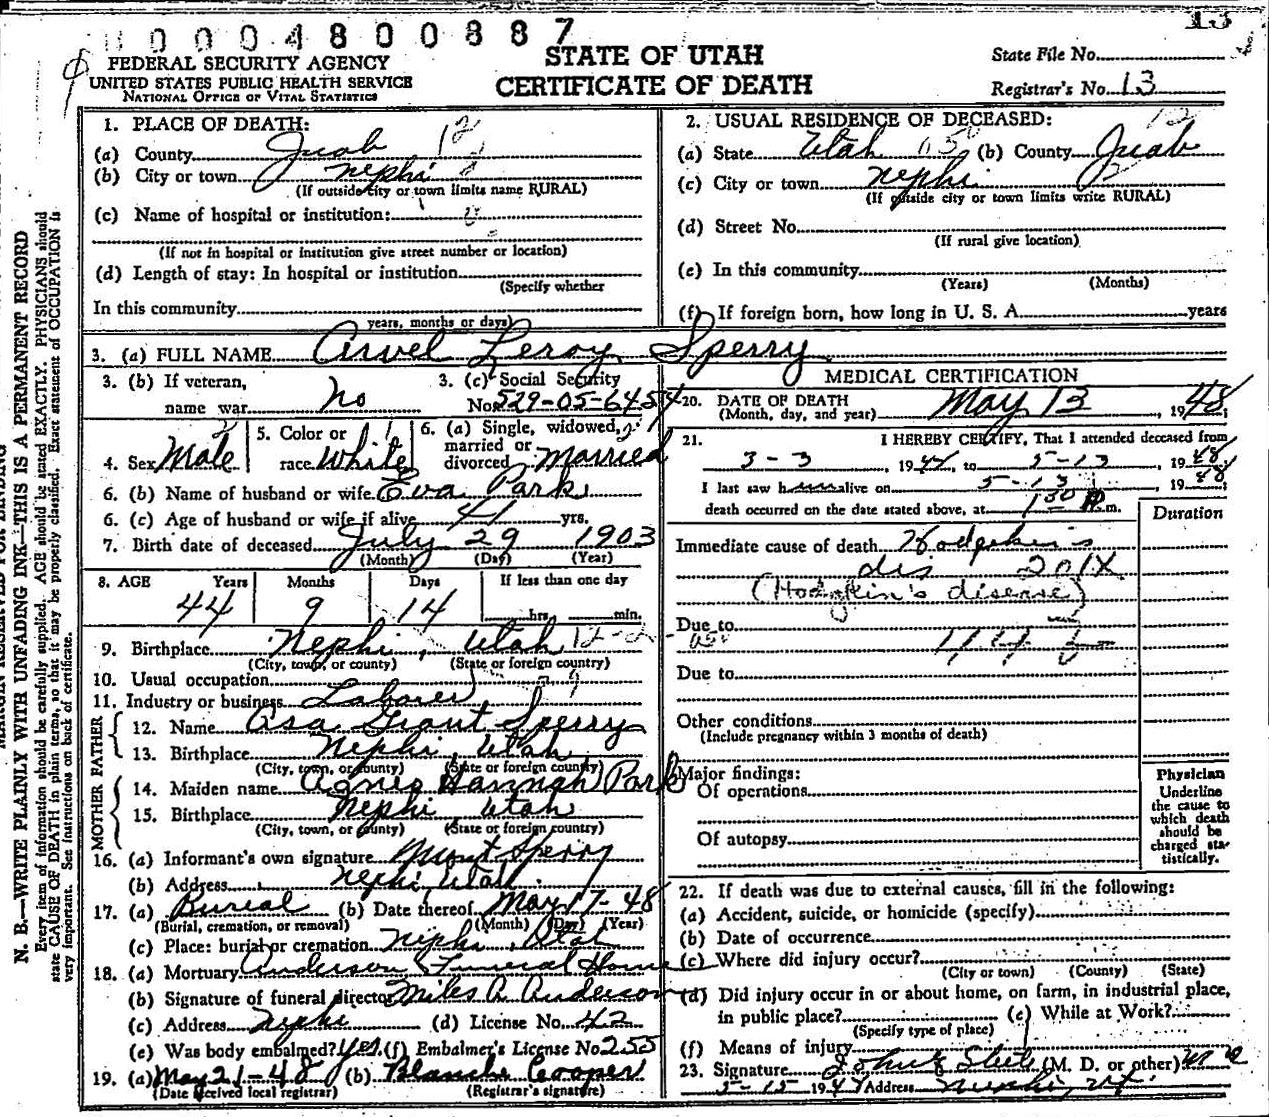 0 0 0 4 8 0 0 8 8 7
13
FEDERAL SECURITY AGENCY
UNITED STATES PUBLIC HEALTH SERVICE
NATIONAL OFFICE OF VITAL STATISTICS
STATE OF UTAH
CERTIFICATE OF DEATH
State File No.
Registrar's No. 13
N. B.—WRITE PLAINLY WITH UNFADING INK—THIS IS A PERMANENT RECORD
Every item of information should be carefully supplied. AGE should be stated EXACTLY. PHYSICIANS should
state CAUSE OF DEATH in plain terms, so that it may be properly classified. Exact statement of OCCUPATION is
very important. See instructions on back of certificate.
1. PLACE OF DEATH: 12
(a) County Juab
(b) City or town Nephi
(If outside city or town limits name RURAL)
(c) Name of hospital or institution:
(If not in hospital or institution give street number or location)
(d) Length of stay: In hospital or institution
(Specify whether
In this community
years, months or days)
2. USUAL RESIDENCE OF DECEASED: 12
(a) State Utah (b) County Juab
(c) City or town Nephi
(If outside city or town limits write RURAL)
(d) Street No.
(If rural give location)
(e) In this community
(Years) (Months)
(f) If foreign born, how long in U. S. A. years
3. (a) FULL NAME Arvel Leroy Sperry
3. (b) If veteran,
name war No
3. (c) Social Security
No. 529-05-6454
4. Sex Male
5. Color or
race White
6. (a) Single, widowed,
married or
divorced Married
6. (b) Name of husband or wife Eva Park
6. (c) Age of husband or wife if alive 41 yrs.
7. Birth date of deceased July 29 1903
(Month) (Day) (Year)
8. AGE Years Months Days If less than one day
44 9 14 hrs. min.
9. Birthplace Nephi, Utah
(City, town, or county) (State or foreign country)
10. Usual occupation
11. Industry or business Laborer
FATHER
12. Name Asa Grant Sperry
13. Birthplace Nephi, Utah
(City, town, or county) (State or foreign country)
MOTHER
14. Maiden name Agnes Hannah Park
15. Birthplace Nephi Utah
(City, town, or county) (State or foreign country)
16. (a) Informant's own signature Mount Sperry
(b) Address Nephi, Utah
17. (a) Burial (b) Date thereof May 17-48
(Burial, cremation, or removal) (Month) (Day) (Year)
(c) Place: burial or cremation Nephi, Utah
18. (a) Mortuary Anderson Funeral Home
(b) Signature of funeral director Miles A. Anderson
(c) Address Nephi (d) License No. 42
(e) Was body embalmed? Yes. (f) Embalmer's License No. 255
19. (a) May 21-48 (b) Blanche Cooper
(Date received local registrar) (Registrar's signature)
MEDICAL CERTIFICATION
20. DATE OF DEATH
(Month, day, and year) May 13, 1948;
21. I HEREBY CERTIFY, That I attended deceased from
3-3, 1944, to 5-13, 1948
I last saw him alive on 5-13, 1948;
death occurred on the date stated above, at 1:30 P. m.
Duration
Immediate cause of death Hodgkin's
dis 201X
(Hodgkin's disease)
Due to
Due to
Other conditions
(Include pregnancy within 3 months of death)
Major findings:
Of operations
Of autopsy
Physician
Underline
the cause to
which death
should be
charged sta-
tistically.
22. If death was due to external causes, fill in the following:
(a) Accident, suicide, or homicide (specify)
(b) Date of occurrence
(c) Where did injury occur?
(City or town) (County) (State)
(d) Did injury occur in or about home, on farm, in industrial place,
in public place? (e) While at Work?
(Specify type of place)
(f) Means of injury
23. Signature (M. D. or other) M D
5-15 194 Address Nephi, Ut.